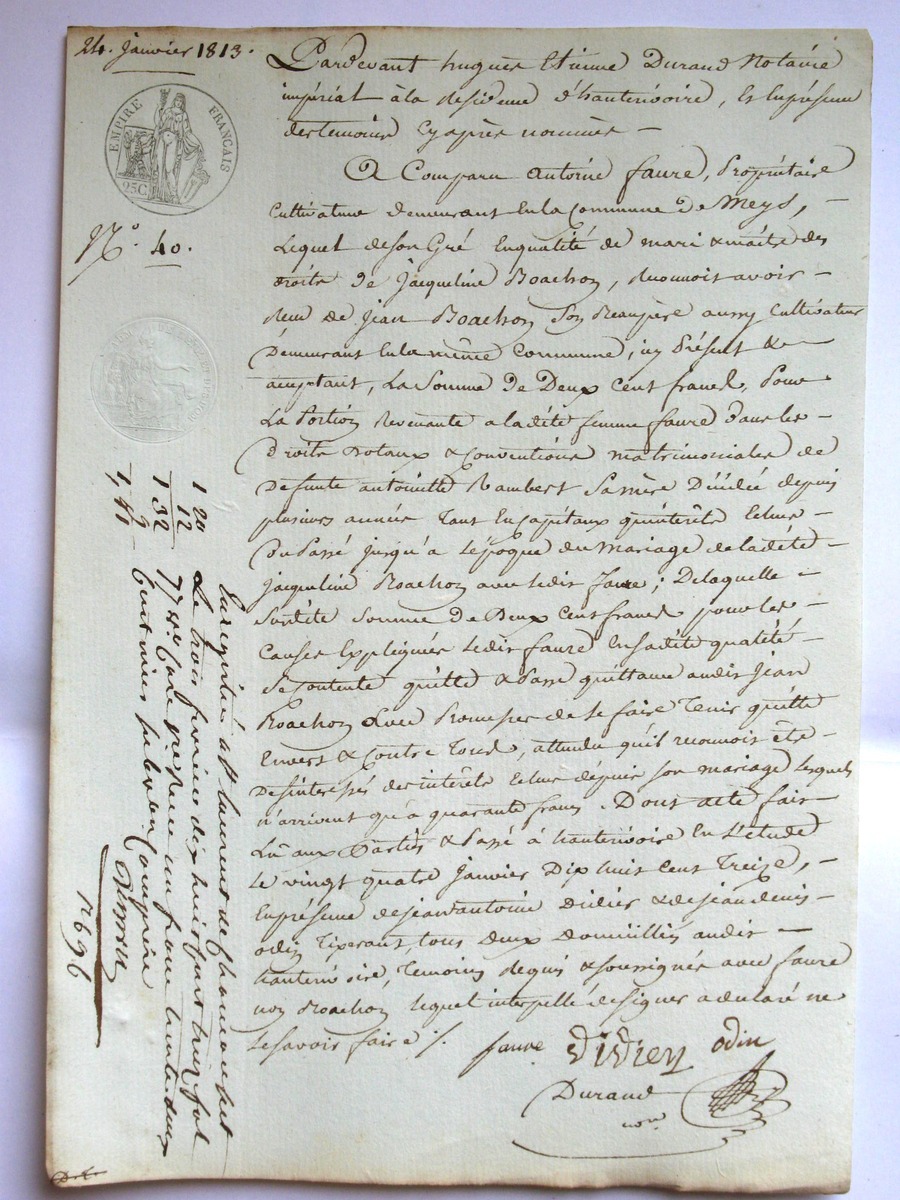 24. Janvier 1813.
EMPIRE FRANÇAIS
25C
N.o 40.
Pardevant hugues Etienne Durand Notaire
impérial à la residence d'hauterivoire, Et En présence
des temoins Cy après nommés —
A Comparu antoine faure, Propriétaire
Cultivateur demeurant En la Commune de Meys, —
Lequel de son Gré En qualité de mari & maitre des
droits de Jacqueline Roachon, reconnois avoir —
reçu de Jean Roachon Son Beaupère aussy Cultivateur
Demeurant En la même Commune, icy Présent & —
acceptant, La Somme de Deux Cent francs, Pour
La Portion Revenante a la dite femme faure dans les —
Droits dotaux & Conventions matrimoniales de
Defunte antoinette Rambert Sa mère Décédée depuis
plusieurs années Tant En Capitaux qu'intérêts Echus
Du Passé jusqu'a L'époque du Mariage de la dite —
Jacqueline Roachon avec ledit faure; De laquelle —
Susdite Somme De Deux Cent francs pour les —
Causes Expliquées ledit faure En sadite qualité —
Se Contente quitte & Passe quittance audit Jean
Roachon avec Promesse de le faire Tenir quitte
Envers & Contre Tous, attendu qu'il reconnois être —
Desinteressés des intérêts Echus depuis son mariage Lesquels
n'arrivent qu'a quarante francs. Dont acte fait
Lu aux Parties & Passé à hauterivoire En L'etude
Le vingt quatre Janvier Dix huit Cent Treize, —
En présence de jean antoine Didier & de jean denis —
odin Tixerant, tous Deux Domicilliés audit —
hauterivoire, Temoins requis & soussignés avec faure
non Roachon lequel interpellé de signer a declaré ne
le savoir faire ./.
faure Didier odin
Durand
nore
Enregistré à St Laurent de Chamousset
Le trois fevrier dix huit cent treize fol
77 Ro Case reçu un franc trente deux
Centimes subvention Comprise
1 20
12
1 32
9
1,41
12696